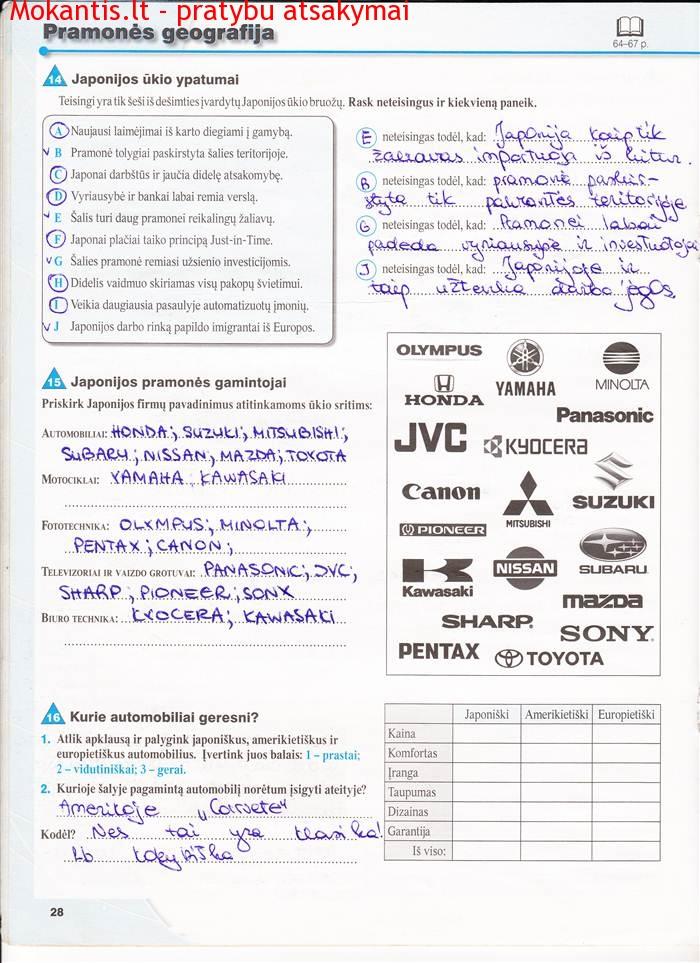 Mokantis.lt - pratybu atsakymai
Pramonės geografija
64–67 p.
14 Japonijos ūkio ypatumai
Teisingi yra tik šeši iš dešimties įvardytų Japonijos ūkio bruožų. Rask neteisingus ir kiekvieną paneik.
A Naujausi laimėjimai iš karto diegiami į gamybą.
v B Pramonė tolygiai paskirstyta šalies teritorijoje.
C Japonai darbštūs ir jaučia didelę atsakomybę.
D Vyriausybė ir bankai labai remia verslą.
v E Šalis turi daug pramonei reikalingų žaliavų.
F Japonai plačiai taiko principą Just-in-Time.
v G Šalies pramonė remiasi užsienio investicijomis.
H Didelis vaidmuo skiriamas visų pakopų švietimui.
I Veikia daugiausia pasaulyje automatizuotų įmonių.
v J Japonijos darbo rinką papildo imigrantai iš Europos.
E neteisingas todėl, kad: Japonija kaip tik
žaliavas importuoja iš kitur.
B neteisingas todėl, kad: pramonė paskir-
styta tik pakrantės teritorijoje
G neteisingas todėl, kad: Pramonei labai
padeda vyriausybė ir investuotojai
J neteisingas todėl, kad: Japonijoje ir
taip užtenka darbo jėgos.
15 Japonijos pramonės gamintojai
Priskirk Japonijos firmų pavadinimus atitinkamoms ūkio sritims:
Automobiliai: HONDA; SUZUKI; MITSUBISHI;
SUBARU; NISSAN; MAZDA; TOYOTA
Motociklai: YAMAHA; KAWASAKI
Fototechnika: OLYMPUS; MINOLTA;
PENTAX; CANON;
Televizoriai ir vaizdo grotuvai: PANASONIC; JVC;
SHARP; PIONEER; SONY
Biuro technika: KYOCERA; KAWASAKI
OLYMPUS
HONDA
YAMAHA
MINOLTA
Panasonic
JVC
KYOCERA
Canon
MITSUBISHI
SUZUKI
PIONEER
Kawasaki
NISSAN
SUBARU
mazda
SHARP
SONY
PENTAX
TOYOTA
16 Kurie automobiliai geresni?
1. Atlik apklausą ir palygink japoniškus, amerikietiškus ir
europietiškus automobilius. Įvertink juos balais: 1 – prastai;
2 – vidutiniškai; 3 – gerai.
2. Kurioje šalyje pagamintą automobilį norėtum įsigyti ateityje?
Amerikoje „Corvete“
Kodėl? Nes tai yra klasika!
Lb kokybiška
Japoniški Amerikietiški Europietiški
Kaina
Komfortas
Įranga
Taupumas
Dizainas
Garantija
Iš viso:
28